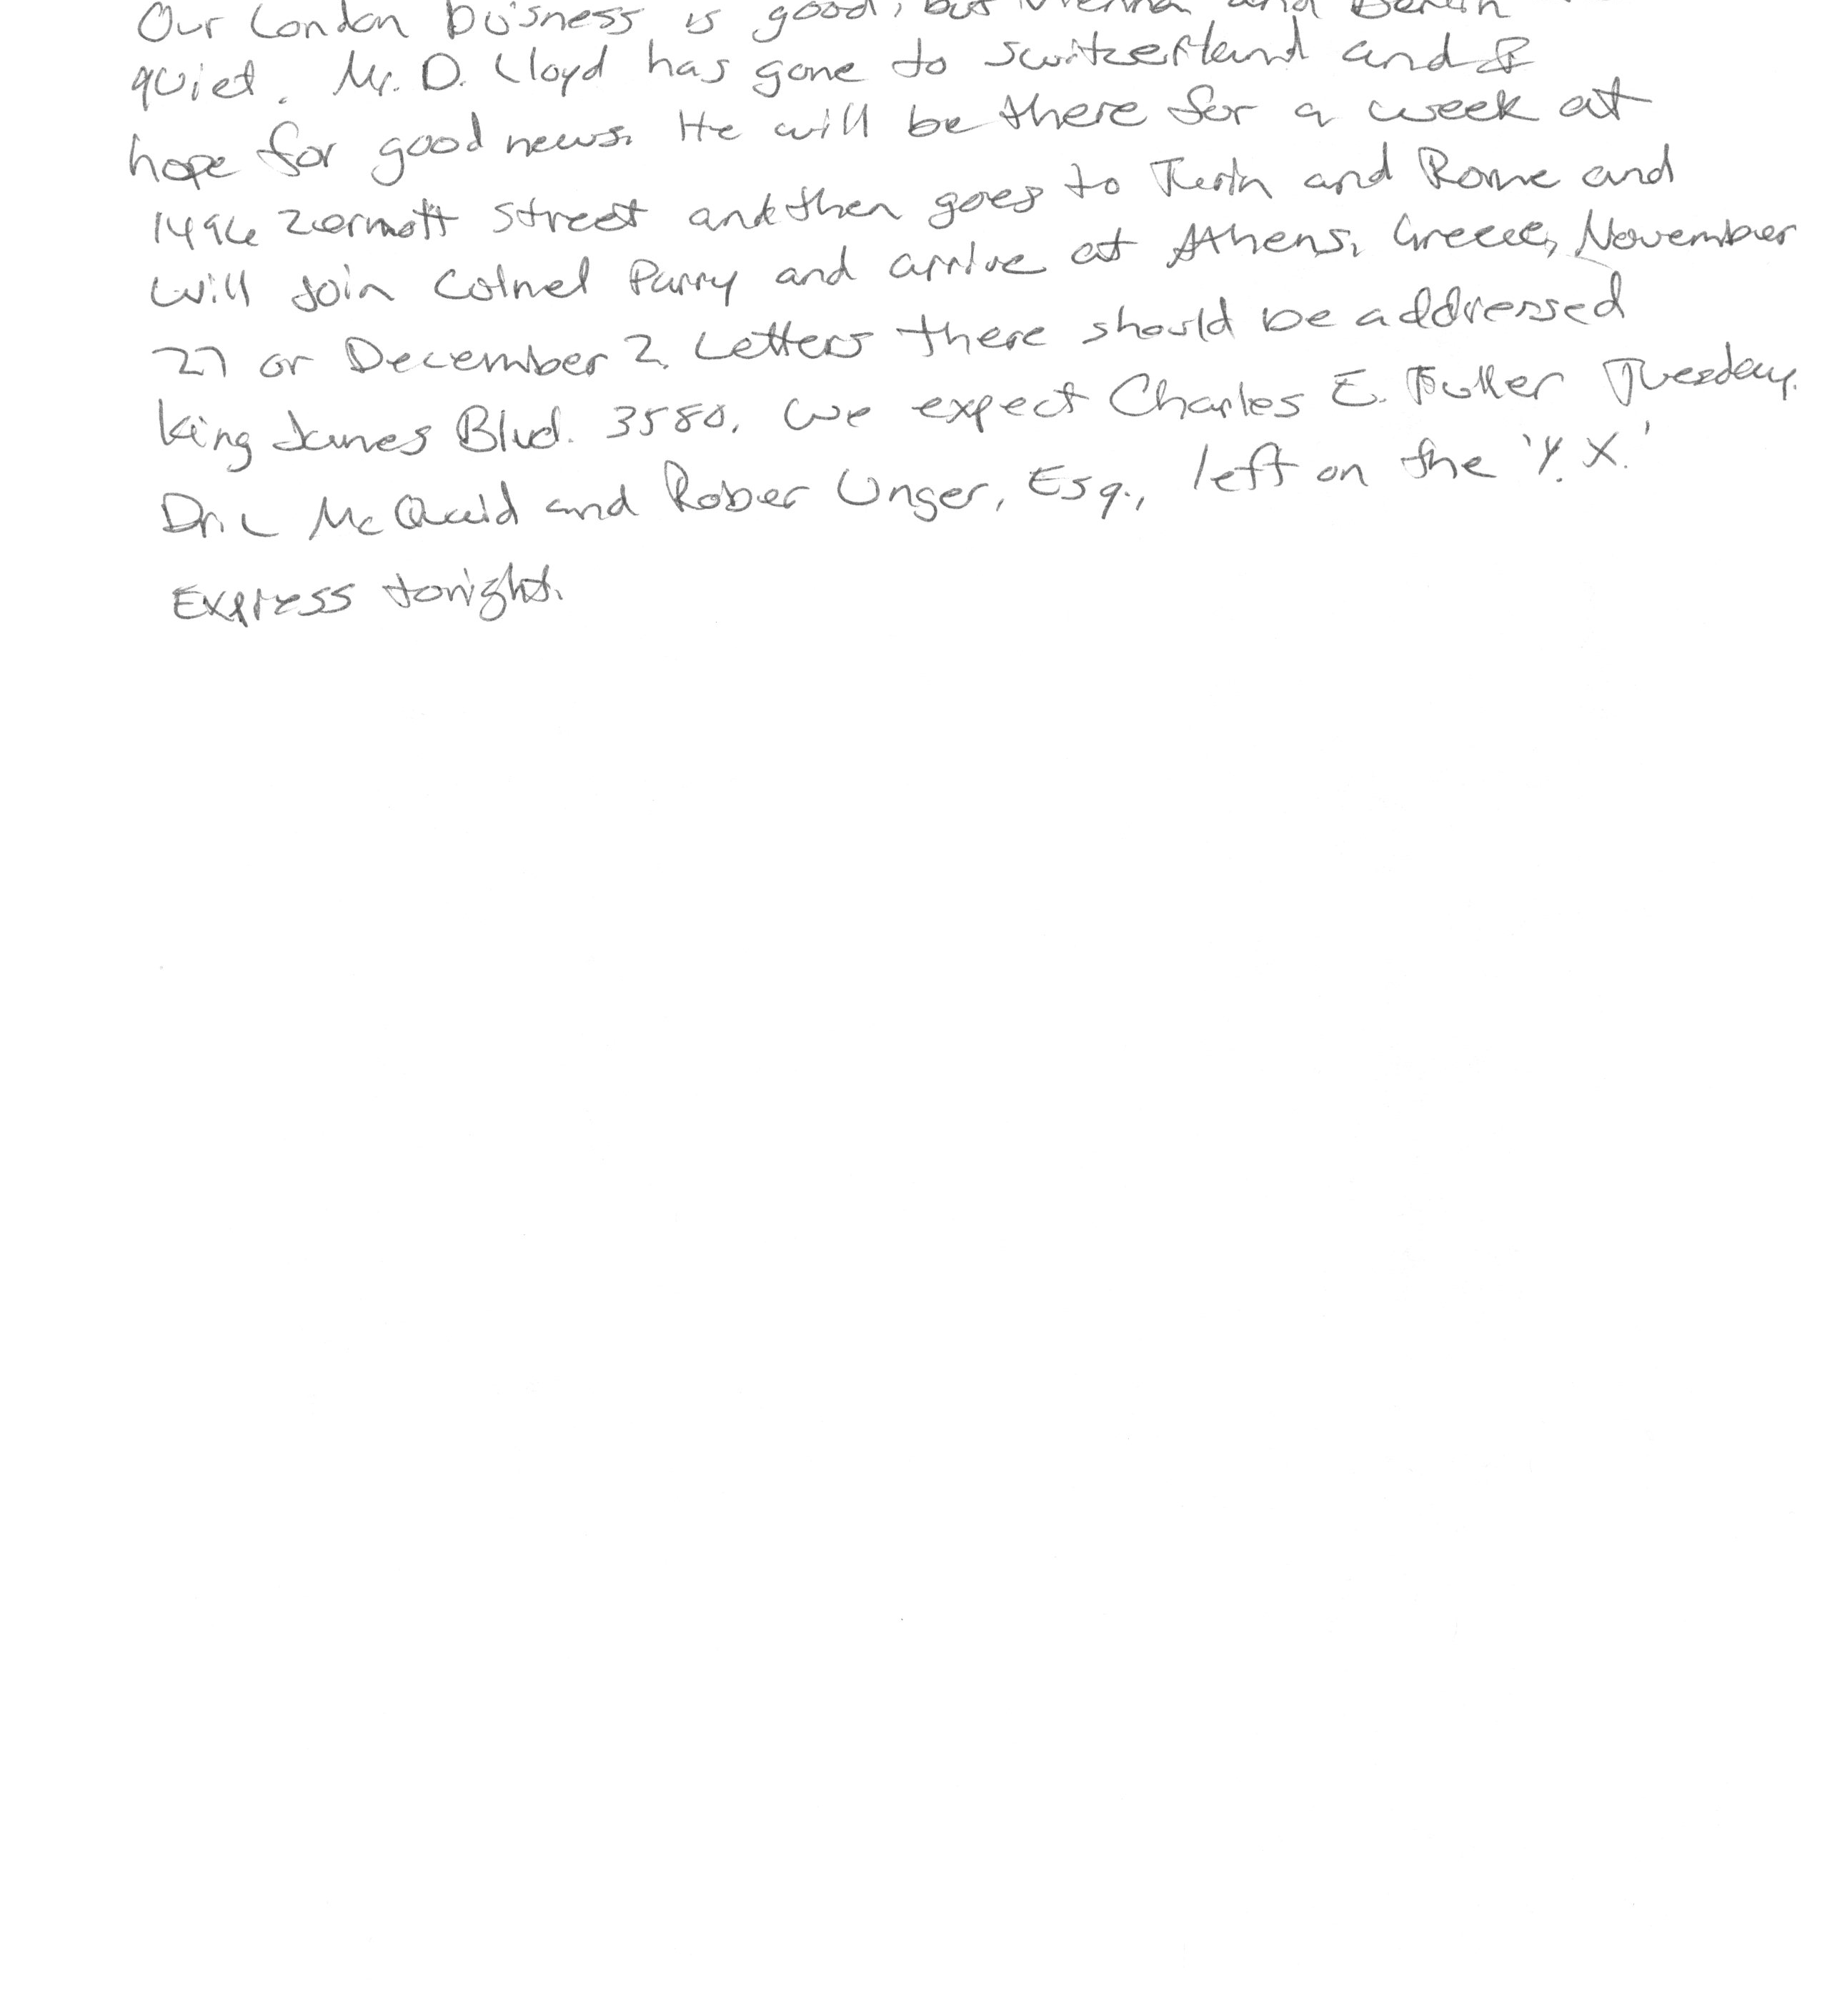 Our London buisness is good, but Vienna and Berlin
quiet. Mr. D. Lloyd has gone to Switzerland and I
hope for good news. He will be there for a week at
1496 Zermott Street and then goes to Turin and Rome and
will join Colnel Parry and arrive at Athens, Greece, November
27 or December 2. Letters there should be addressed
King James Blvd. 3580. We expect Charles E. Fuller Tuesday.
Dr. L McQuaid and Rober Unger, Esq., left on the 'Y.X.'
Express tonight.